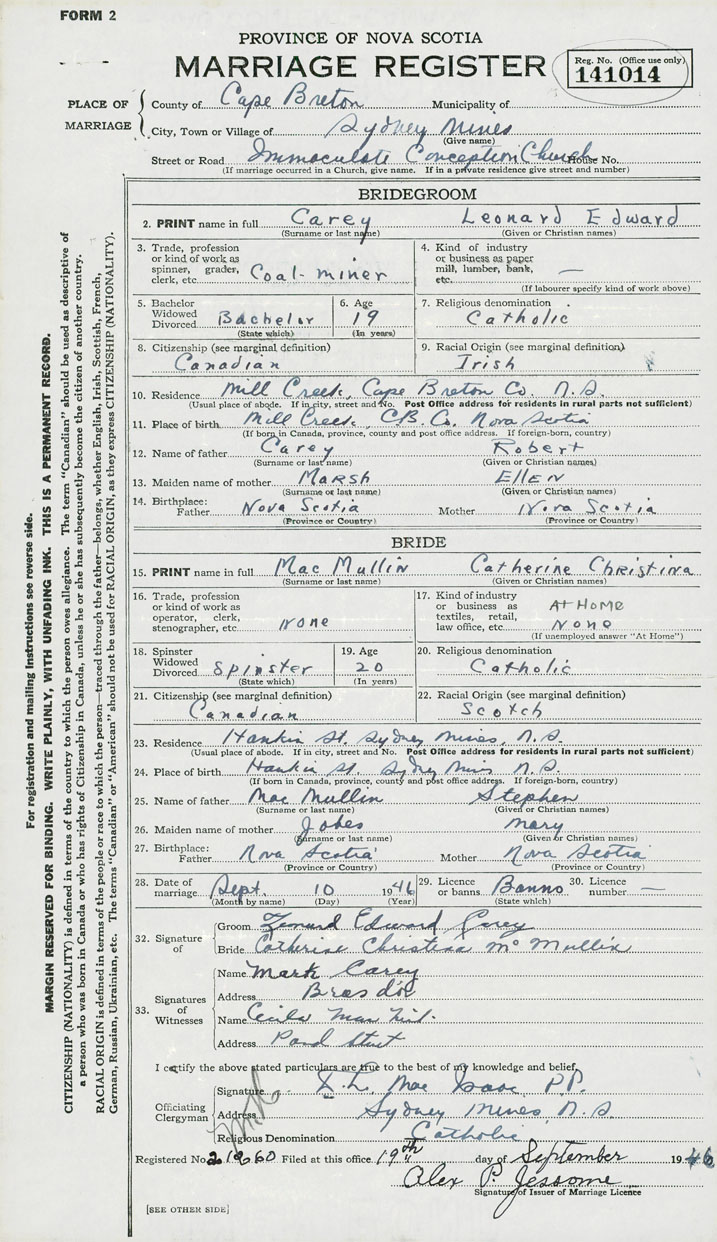 FORM 2
PROVINCE OF NOVA SCOTIA
MARRIAGE REGISTER
Reg. No. (Office use only)
141014
PLACE OF MARRIAGE
County of Cape Breton Municipality of
City, Town or Village of Sydney Mines
(Give name)
Street or Road Immaculate Conception Church House No.
(If marriage occurred in a Church, give name. If in a private residence give street and number)
BRIDEGROOM
2. PRINT name in full Carey Leonard Edward
(Surname or last name) (Given or Christian names)
3. Trade, profession or kind of work as spinner, grader, clerk, etc. Coal-miner
4. Kind of industry or business as paper mill, lumber, bank, etc. —
(If labourer specify kind of work above)
5. Bachelor Widowed Divorced Bachelor
(State which)
6. Age 19
(In years)
7. Religious denomination
Catholic
8. Citizenship (see marginal definition)
Canadian
9. Racial Origin (see marginal definition)
Irish
10. Residence Mill Creek, Cape Breton Co. N.S.
(Usual place of abode. If in city, street and No. Post Office address for residents in rural parts not sufficient)
11. Place of birth Mill Creek, C.B. Co. Nova Scotia
(If born in Canada, province, county and post office address. If foreign-born, country)
12. Name of father Carey Robert
(Surname or last name) (Given or Christian names)
13. Maiden name of mother Marsh Ellen
(Surname or last name) (Given or Christian names)
14. Birthplace: Father Nova Scotia Mother Nova Scotia
(Province or Country) (Province or Country)
BRIDE
15. PRINT name in full Mac Mullin Catherine Christina
(Surname or last name) (Given or Christian names)
16. Trade, profession or kind of work as operator, clerk, stenographer, etc. None
17. Kind of industry or business as textiles, retail, law office, etc. At Home None
(If unemployed answer "At Home")
18. Spinster Widowed Divorced Spinster
(State which)
19. Age 20
(In years)
20. Religious denomination
Catholic
21. Citizenship (see marginal definition)
Canadian
22. Racial Origin (see marginal definition)
Scotch
23. Residence Hankin St. Sydney Mines, N.S.
(Usual place of abode. If in city, street and No. Post Office address for residents in rural parts not sufficient)
24. Place of birth Hankin St. Sydney Mines N.S.
(If born in Canada, province, county and post office address. If foreign-born, country)
25. Name of father Mac Mullin Stephen
(Surname or last name) (Given or Christian names)
26. Maiden name of mother Jobes Mary
(Surname or last name) (Given or Christian names)
27. Birthplace: Father Nova Scotia Mother Nova Scotia
(Province or Country) (Province or Country)
28. Date of marriage Sept. 10 1946
(Month by name) (Day) (Year)
29. Licence or banns Banns
(State which)
30. Licence number —
32. Signature of
Groom Leonard Edward Carey
Bride Catherine Christina McMullin
33. Signatures of Witnesses
Name Mark Carey
Address Bras d'or
Name Cecila Mac
Address Pond Street
I certify the above stated particulars are true to the best of my knowledge and belief.
Officiating Clergyman
Signature Mac Isaac P.P.
Address Sydney Mines, N.S.
Religious Denomination Catholic
Registered No. 21960 Filed at this office 19th day of September 1946
Alex P. Jessome
Signature of Issuer of Marriage Licence
[SEE OTHER SIDE]
For registration and mailing instructions see reverse side.
MARGIN RESERVED FOR BINDING. WRITE PLAINLY, WITH UNFADING INK. THIS IS A PERMANENT RECORD.
CITIZENSHIP (NATIONALITY) is defined in terms of the country to which the person owes allegiance. The term "Canadian" should be used as descriptive of
a person who was born in Canada or who has rights of Citizenship in Canada, unless he or she has subsequently become the citizen of another country.
RACIAL ORIGIN is defined in terms of the people or race to which the person—traced through the father—belongs, whether English, Irish, Scottish, French,
German, Russian, Ukrainian, etc. The terms "Canadian" or "American" should not be used for RACIAL ORIGIN, as they express CITIZENSHIP (NATIONALITY).